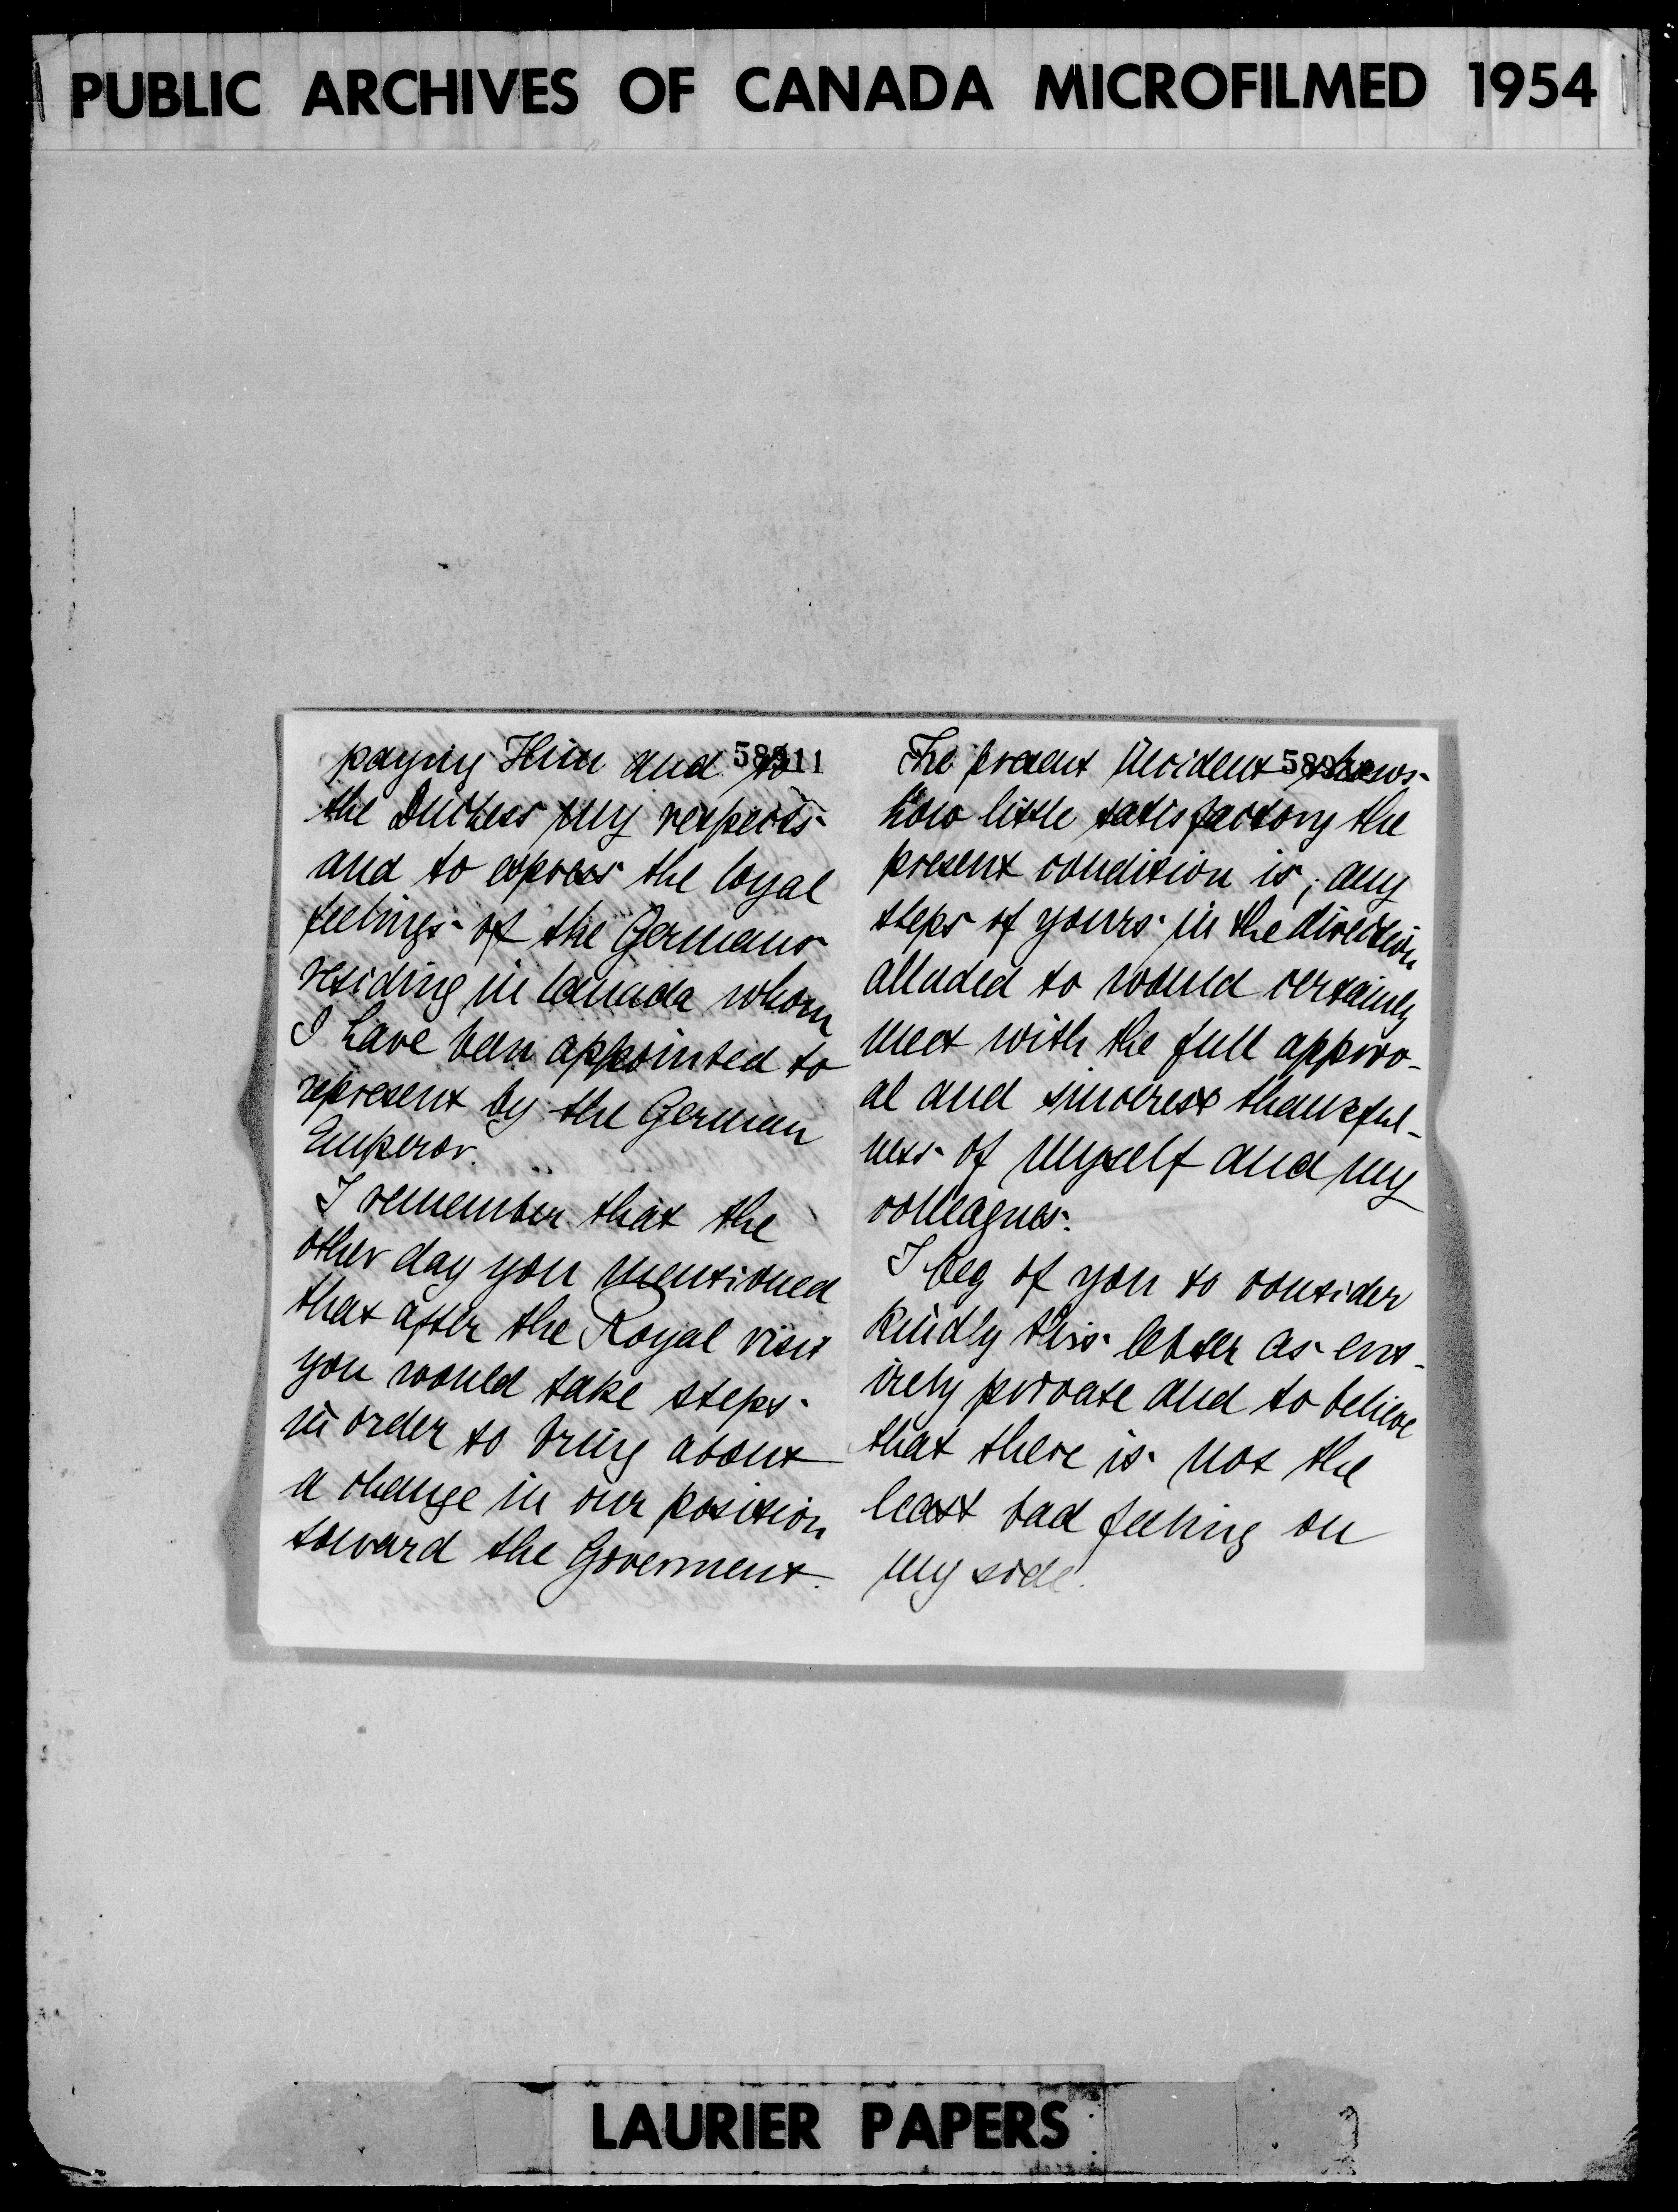 PUBLIC ARCHIVES OF CANADA MICROFILMED 1954
paying Him and to
58911
the Duchess my respects
and to express the loyal
feelings of the Germans
residing in Canada whom
I have been appointed to
represent by the German
Emperor.
I remember that the
other day you mentioned
that after the Royal visit
you would take steps
in order to bring about
a change in our position
toward the Goverment.
The present incident shows
how little satisfactory the
present condition is; any
steps of yours in the direction
alluded to would certainly
meet with the full approv-
al and sincerest thankful-
ness of myself and my
colleagues.
I beg of you to consider
kindly this letter as ent-
irely private and to believe
that there is not the
least bad feeling on
my side.
LAURIER PAPERS